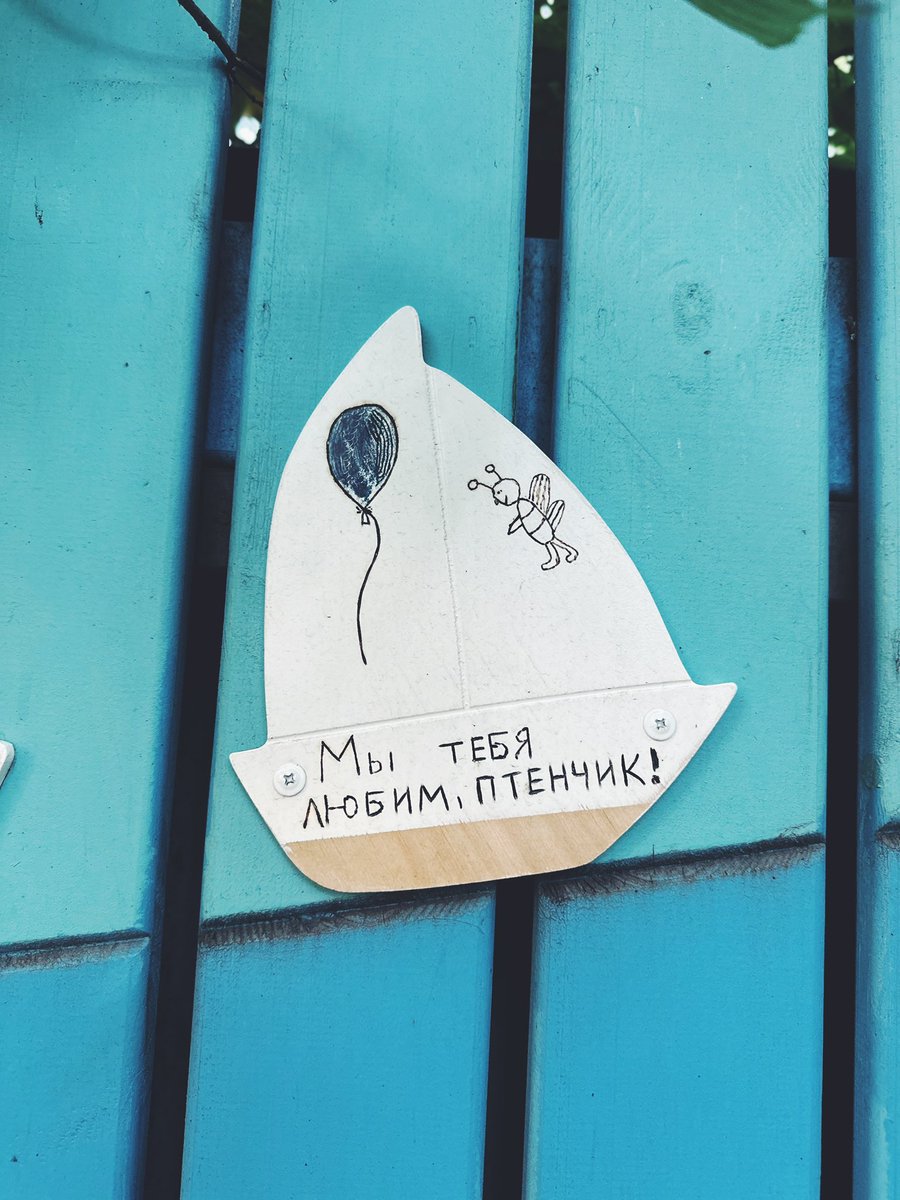 Мы ТЕБЯ
ЛЮБИМ, ПТЕНЧИК!